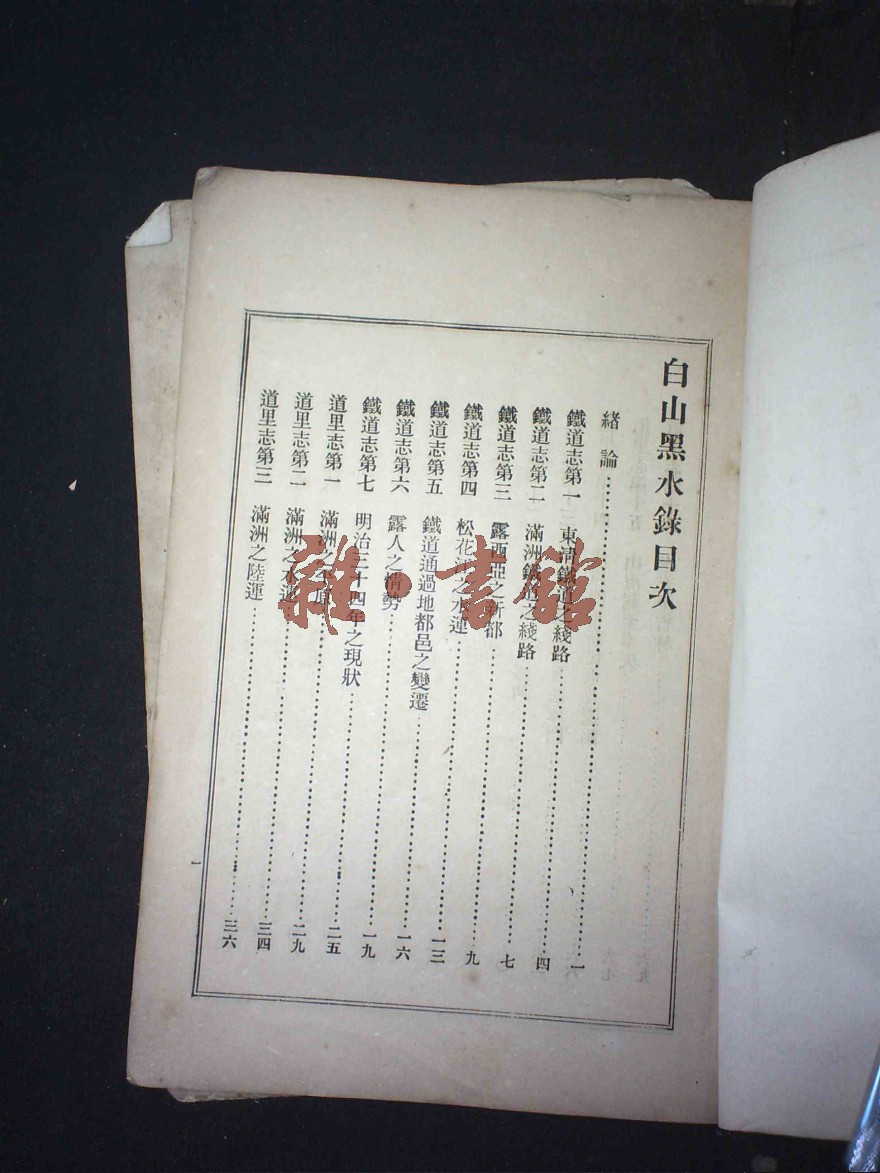 白山黑水錄目次
緒論……一
鐵道志第一 東清鐵道之綫路……四
鐵道志第二 滿洲鐵道之綫路……七
鐵道志第三 露西亞之新都……九
鐵道志第四 松花江之水運……一三
鐵道志第五 鐵道通過地都邑之變遷……一六
鐵道志第六 露人之情勢……一九
鐵道志第七 明治三十四年之現狀……二五
道里志第一 滿洲之原……二九
道里志第二 滿洲之水運……三四
道里志第三 滿洲之陸運……三六
一
雜·書館